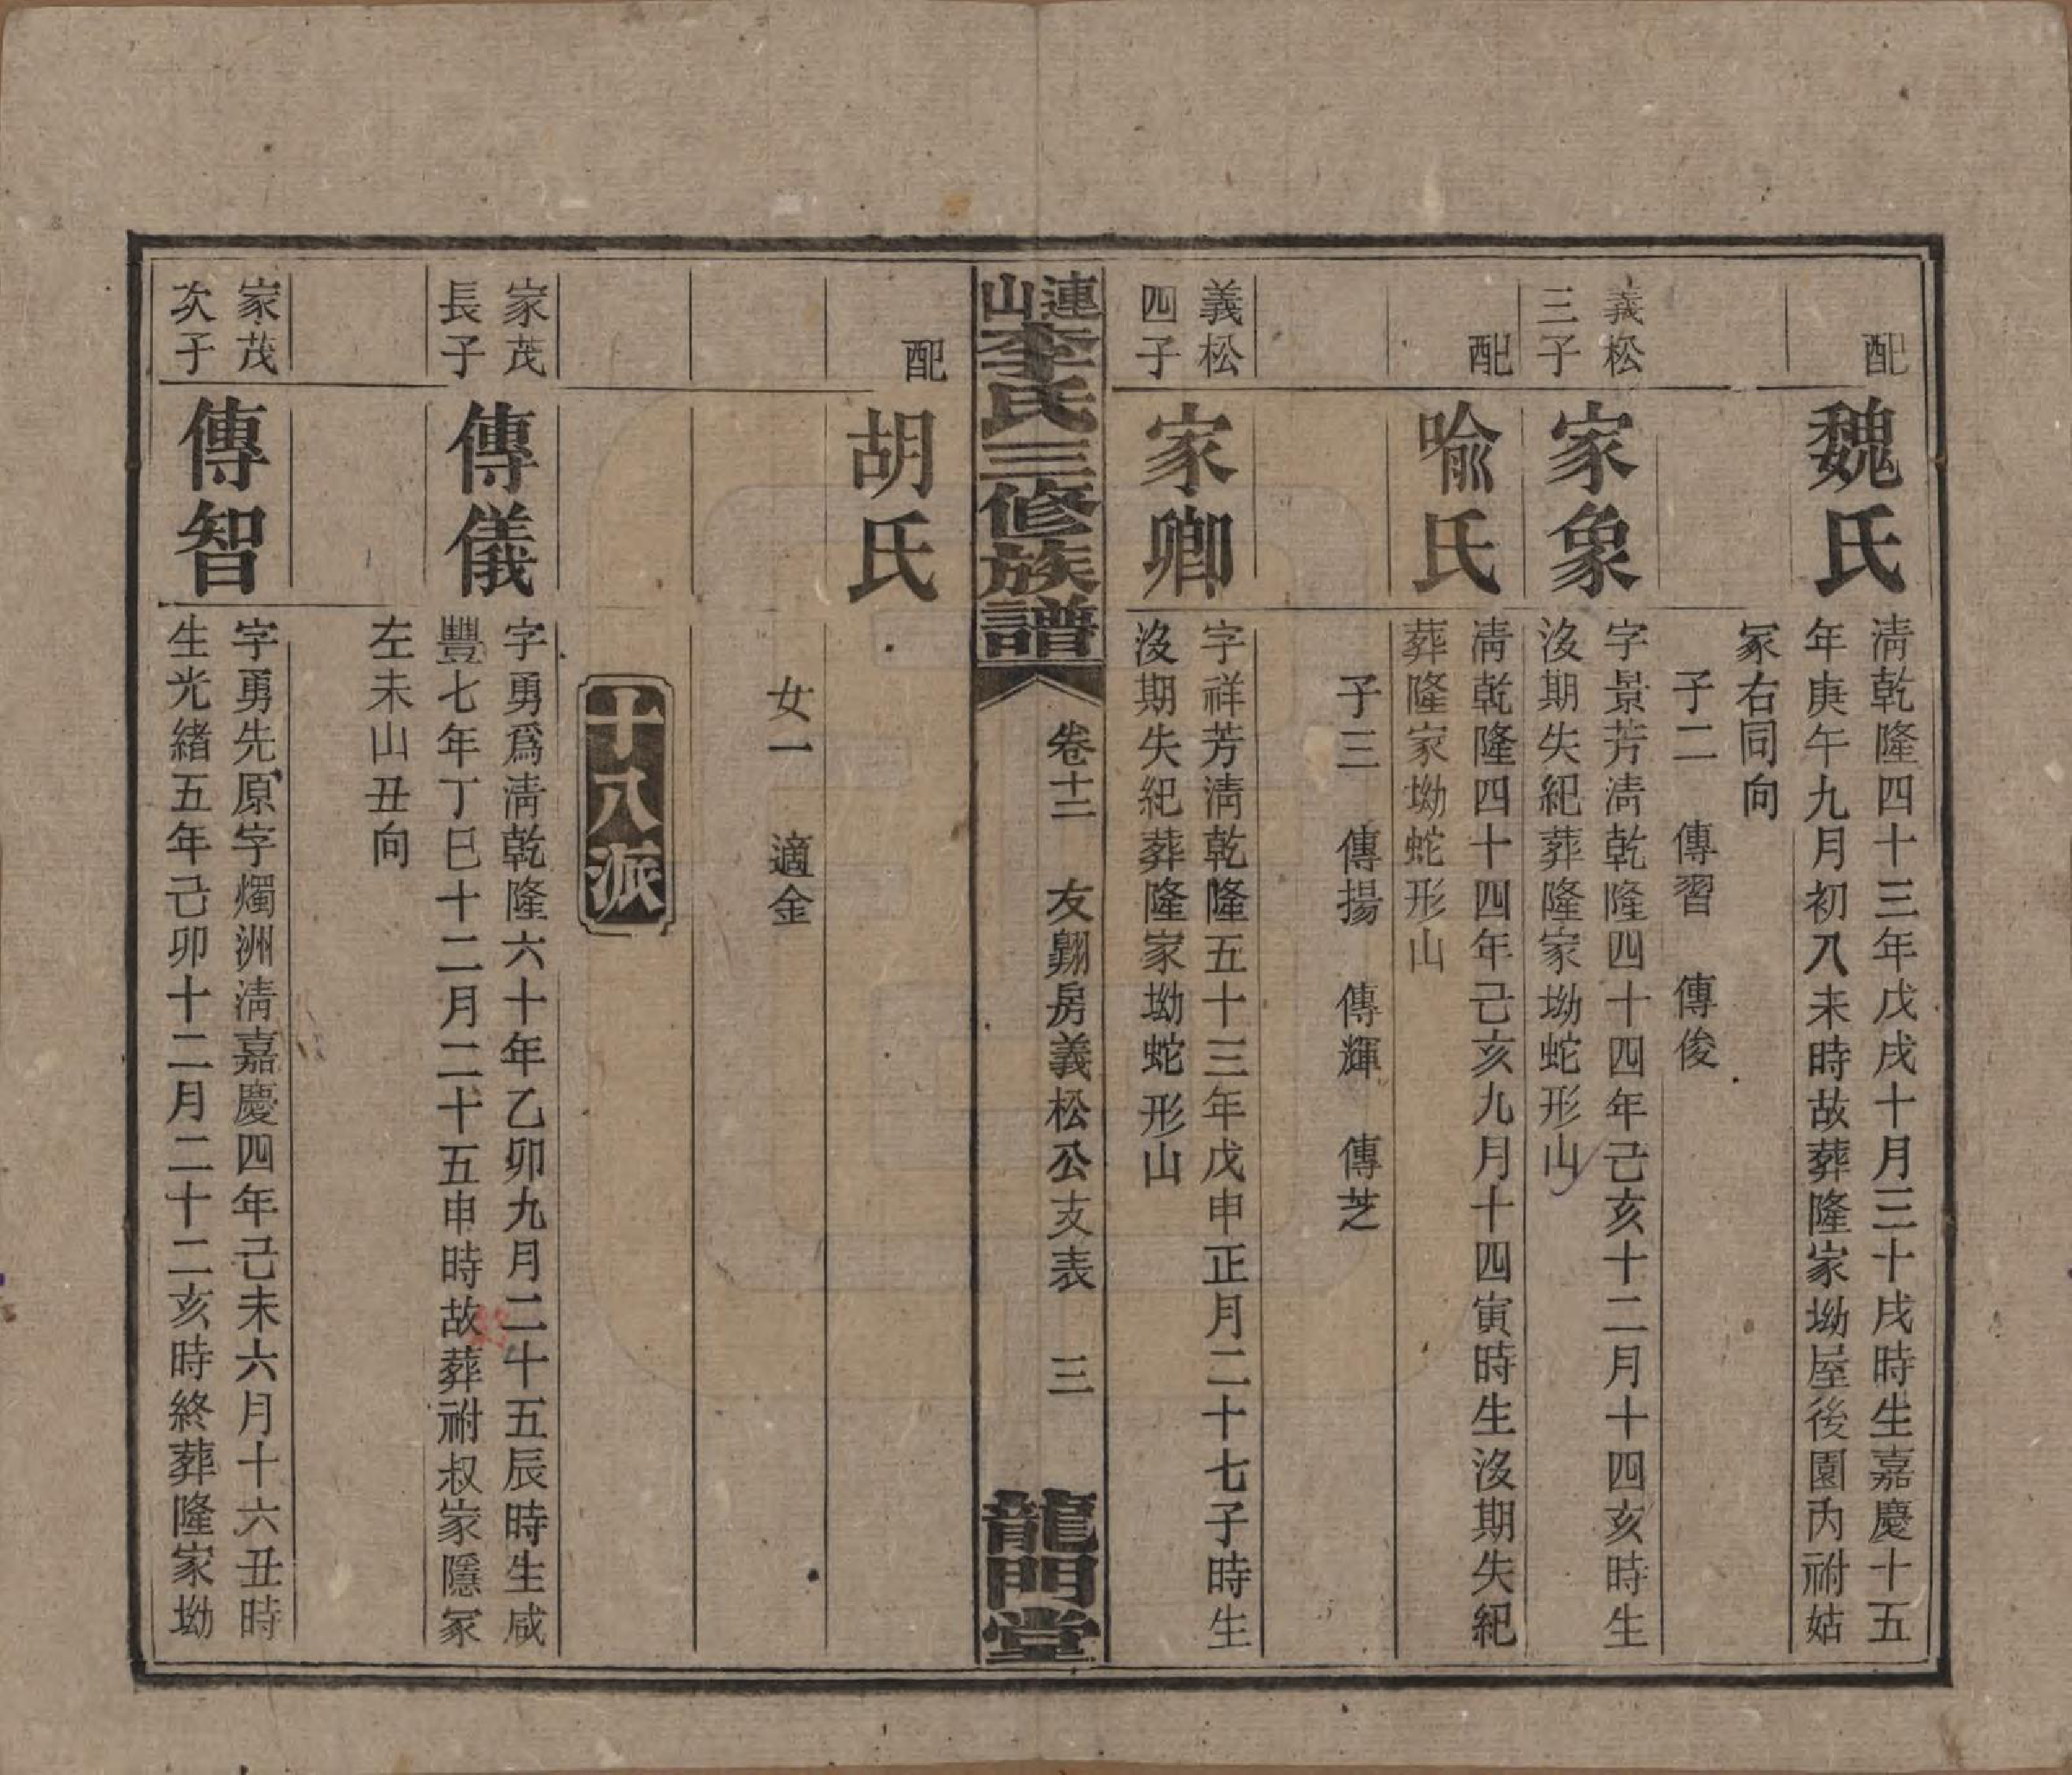 配
魏氏
淸乾隆四十三年戊戌十月三十戌時生嘉慶十五
年庚午九月初八未時故葬隆家坳屋後園內祔姑
冢右同向
子二　傳習　傳俊
義松
三子
家象
字景芳淸乾隆四十四年己亥十二月十四亥時生
沒期失紀葬隆家坳蛇形山
配
喩氏
淸乾隆四十四年己亥九月十四寅時生沒期失紀
葬隆家坳蛇形山
子三　傳揚　傳輝　傳芝
義松
四子
家卿
字祥芳淸乾隆五十三年戊申正月二十七子時生
沒期失紀葬隆家坳蛇形山
連山李氏三修族譜
卷十二　友翺房義松公支表　三
龍門堂
配
胡氏
女一　適金
十八派
家茂
長子
傳儀
字勇爲淸乾隆六十年乙卯九月二十五辰時生咸
豐七年丁巳十二月二十五申時故葬祔叔家隱冢
左未山丑向
家茂
次子
傳智
字勇先原字燭洲淸嘉慶四年己未六月十六丑時
生光緖五年己卯十二月二十二亥時終葬隆家坳